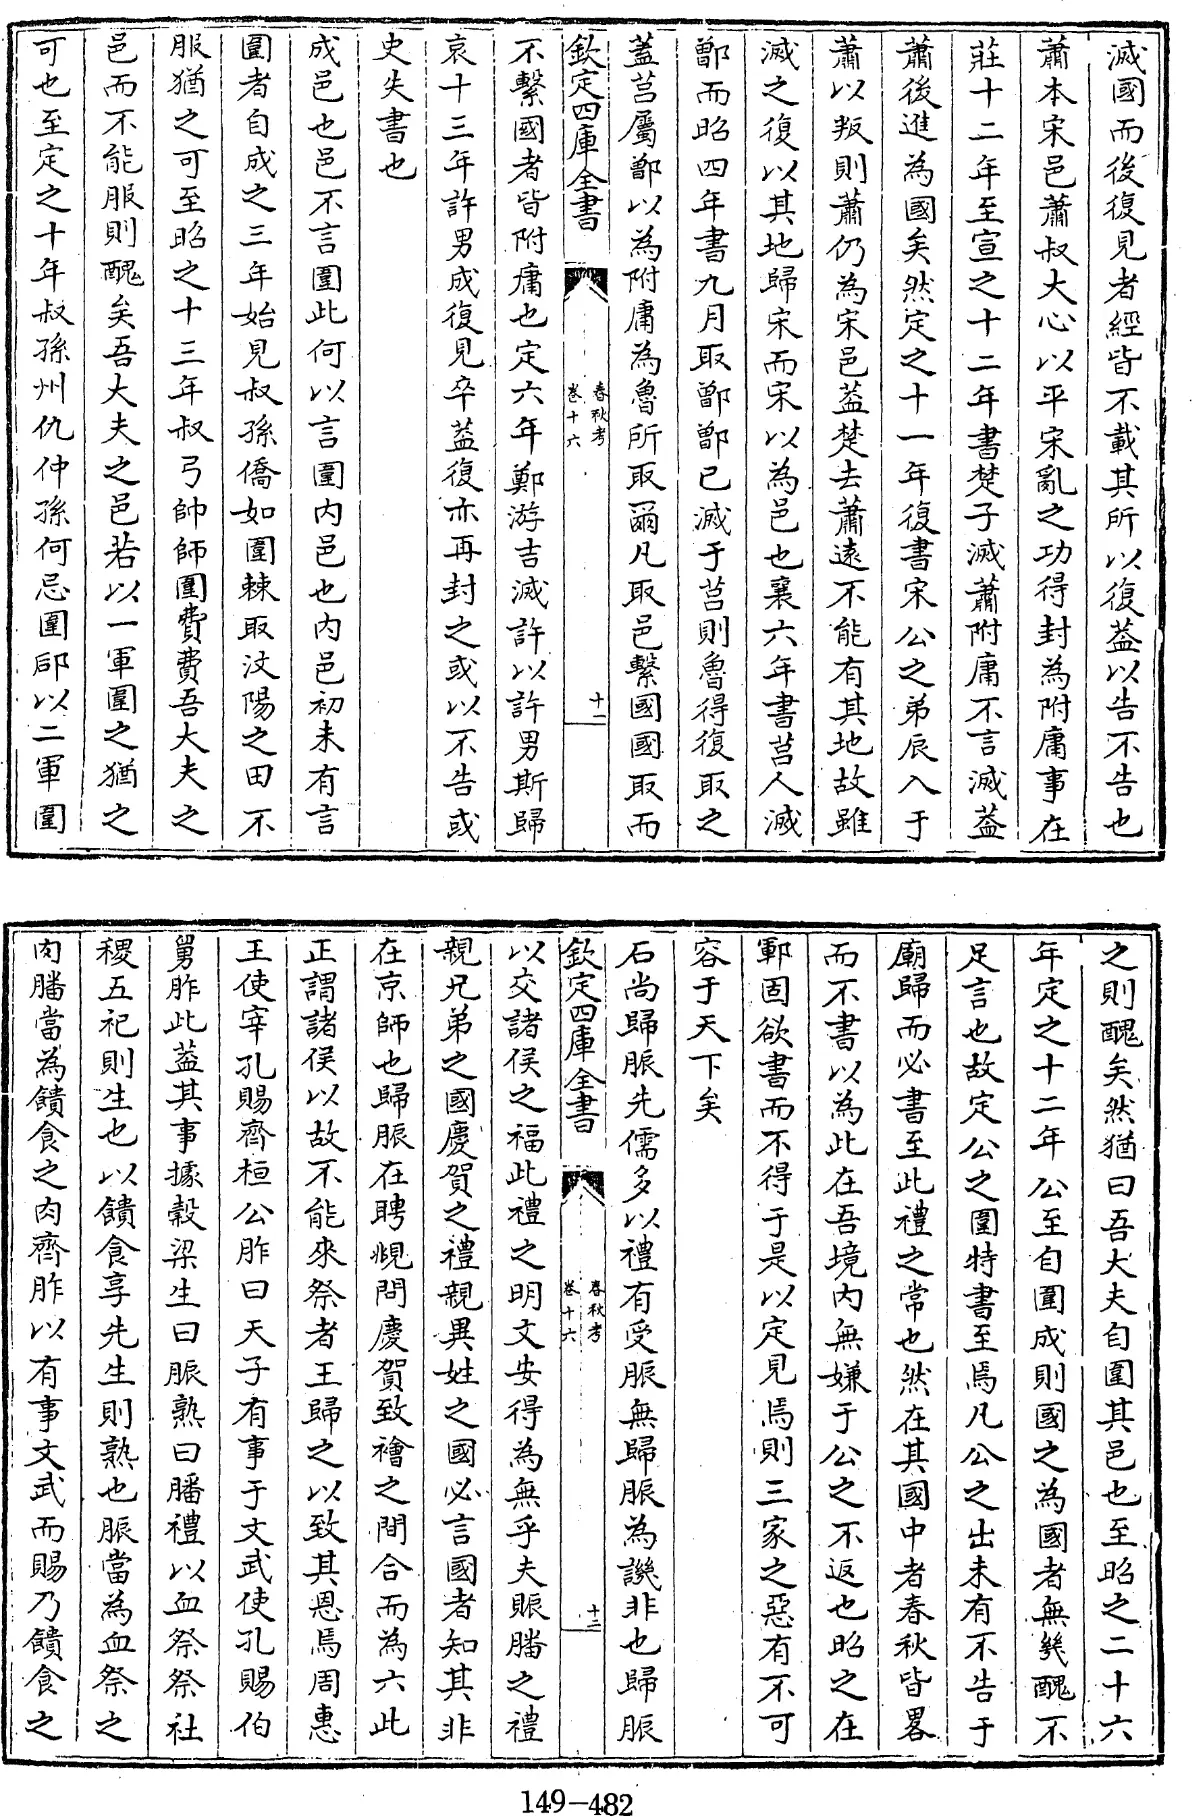 滅國而後復見者經皆不載其所以復葢以告不告也
蕭本宋邑蕭叔大心以平宋亂之功得封為附庸事在
莊十二年至宣之十二年書楚子滅蕭附庸不言滅葢
蕭後進為國矣然定之十一年復書宋公之弟辰入于
蕭以叛則蕭仍為宋邑葢楚去蕭逺不能有其地故雖
滅之復以其地歸宋而宋以為邑也襄六年書莒人滅
鄫而昭四年書九月取鄫鄫已滅于莒則魯得復取之
葢莒屬鄫以為附庸為魯所取爾凡取邑繫國國取而
欽定四庫全書
春秋考
卷十六
十二
不繫國者皆附庸也定六年鄭游吉滅許以許男斯歸
哀十三年許男成復見卒葢復亦再封之或以不告或
史失書也
成邑也邑不言圍此何以言圍内邑也内邑初未有言
圍者自成之三年始見叔孫僑如圍棘取汶陽之田不
服猶之可至昭之十三年叔弓帥師圍費費吾大夫之
邑而不能服則醜矣吾大夫之邑若以一軍圍之猶之
可也至定之十年叔孫州仇仲孫何忌圍郈以二軍圍
之則醜矣然猶曰吾大夫自圍其邑也至昭之二十六
年定之十二年公至自圍成則國之為國者無幾醜不
足言也故定公之圍特書至焉凡公之出未有不告于
廟歸而必書至此禮之常也然在其國中者春秋皆畧
而不書以為此在吾境内無嫌于公之不返也昭之在
鄆固欲書而不得于是以定見焉則三家之惡有不可
容于天下矣
石尚歸脤先儒多以禮有受脤無歸脤為譏非也歸脤
欽定四庫全書
春秋考
卷十六
十二
以交諸侯之福此禮之明文安得為無乎夫脤膰之禮
親兄弟之國慶賀之禮親異姓之國必言國者知其非
在京師也歸脤在聘覜問慶賀致禬之間合而為六此
正謂諸侯以故不能來祭者王歸之以致其恩焉周惠
王使宰孔賜齊桓公胙曰天子有事于文武使孔賜伯
舅胙此葢其事據榖梁生曰脤熟曰膰禮以血祭祭社
稷五祀則生也以饋食享先生則熟也脤當為血祭之
肉膰當為饋食之肉齊胙以有事文武而賜乃饋食之
149-482